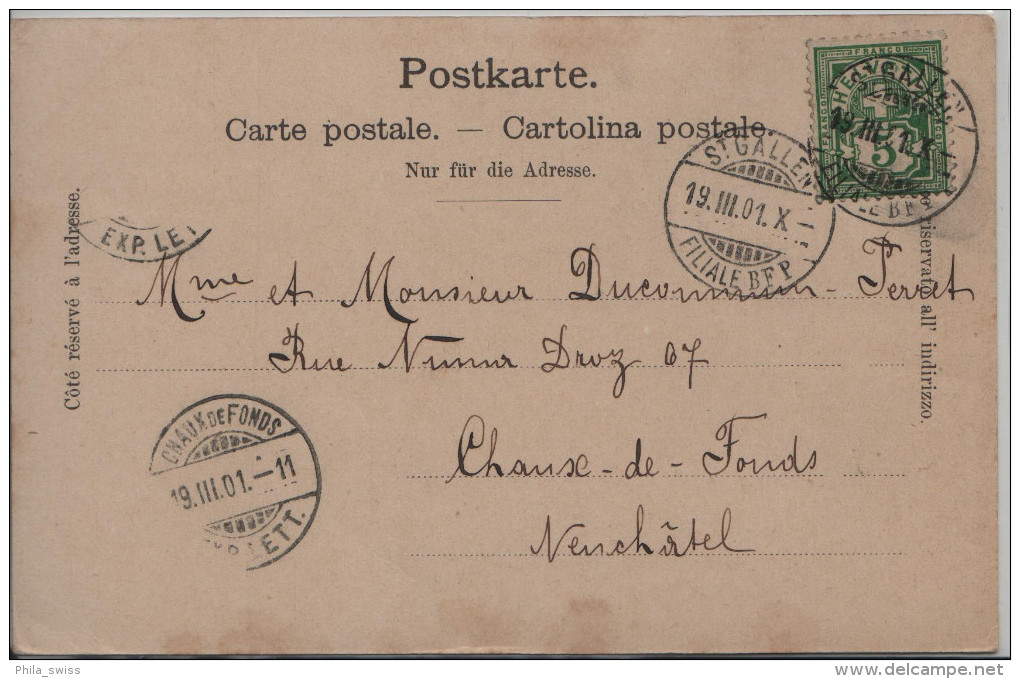 Postkarte.
Carte postale. — Cartolina postale.
Nur für die Adresse.
Côté réservé à l'adresse.
riservato all' indirizzo
FRANCO
5
ST GALLEN
19.III.01. X
FILIALE BFP
EXP. LET
Mme et Monsieur Ducommun - Perret
Rue Numa Droz 67
Chaux - de - Fonds
Neuchâtel
CHAUX DE FONDS
19.III.01. - 11
EXP. LETT.
Phila_swiss
delcampe.net